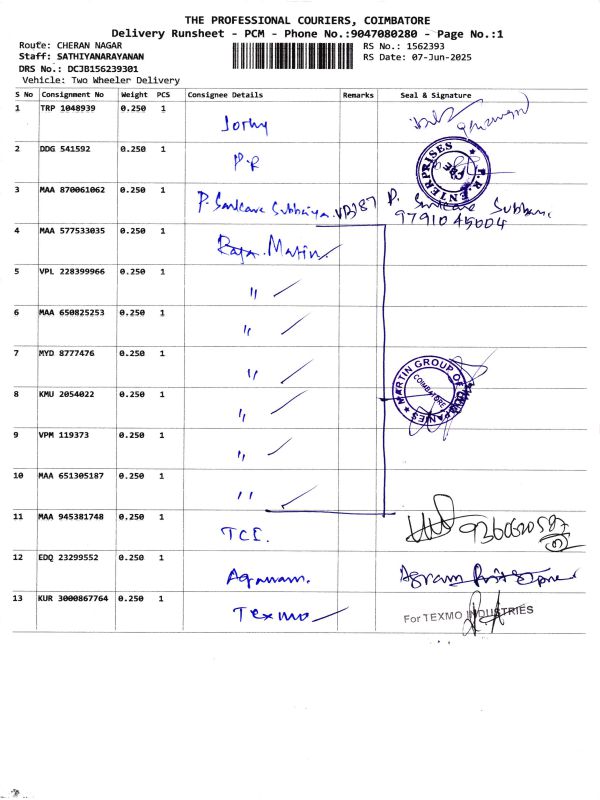 THE PROFESSIONAL COURIERS, COIMBATORE
Delivery Runsheet - PCM - Phone No.:9047080280 - Page No.:1
Route: CHERAN NAGAR
RS No.: 1562393
Staff: SATHIYANARAYANAN
RS Date: 07-Jun-2025
DRS No.: DCJB156239301
Vehicle: Two Wheeler Delivery
S No Consignment No Weight PCS Consignee Details Remarks Seal & Signature
1 TRP 1048939 0.250 1
2 DDG 541592 0.250 1 P.R P.R. ENTERPRISES CBE
3 MAA 870061062 0.250 1 P.
9791045004
4 MAA 577533035 0.250 1 Raja Martin
5 VPL 228399966 0.250 1 " ✓
6 MAA 650825253 0.250 1 " ✓
7 MYD 8777476 0.250 1 " ✓
MARTIN GROUP OF COMPANIES COIMBATORE
8 KMU 2054022 0.250 1 " ✓
9 VPM 119373 0.250 1 " ✓
10 MAA 651305187 0.250 1 " ✓
11 MAA 945381748 0.250 1 TCI.
12 EDQ 23299552 0.250 1
13 KUR 3000867764 0.250 1 Texmo For TEXMO INDUSTRIES